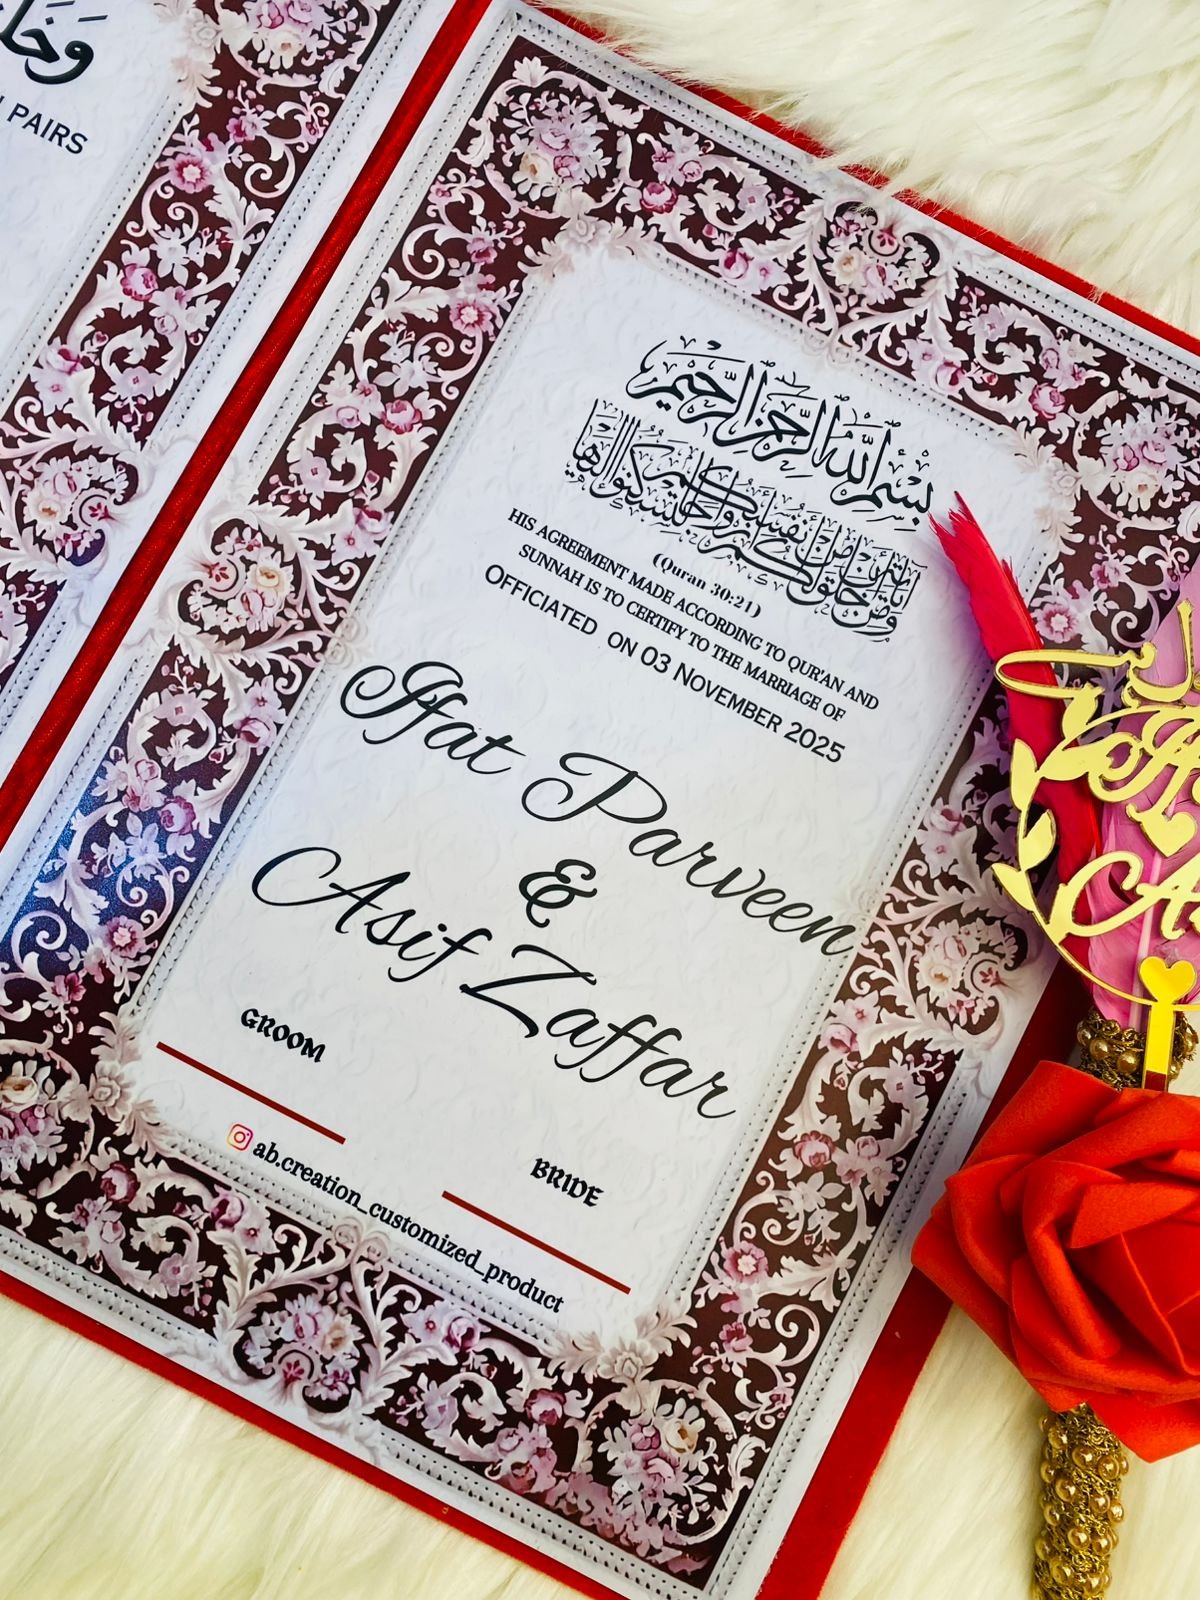 وَخَلَ
PAIRS
بِسْمِ اللَّهِ الرَّحْمَٰنِ الرَّحِيمِ
وَمِنْ آيَاتِهِ أَنْ خَلَقَ لَكُمْ مِنْ أَنْفُسِكُمْ أَزْوَاجًا لِتَسْكُنُوا إِلَيْهَا
(Quran 30:21)
HIS AGREEMENT MADE ACCORDING TO QUR'AN AND
SUNNAH IS TO CERTIFY TO THE MARRIAGE OF
OFFICIATED ON 03 NOVEMBER 2025
Iffat Parveen
&
Asif Zaffar
GROOM
BRIDE
ab.creation_customized_product